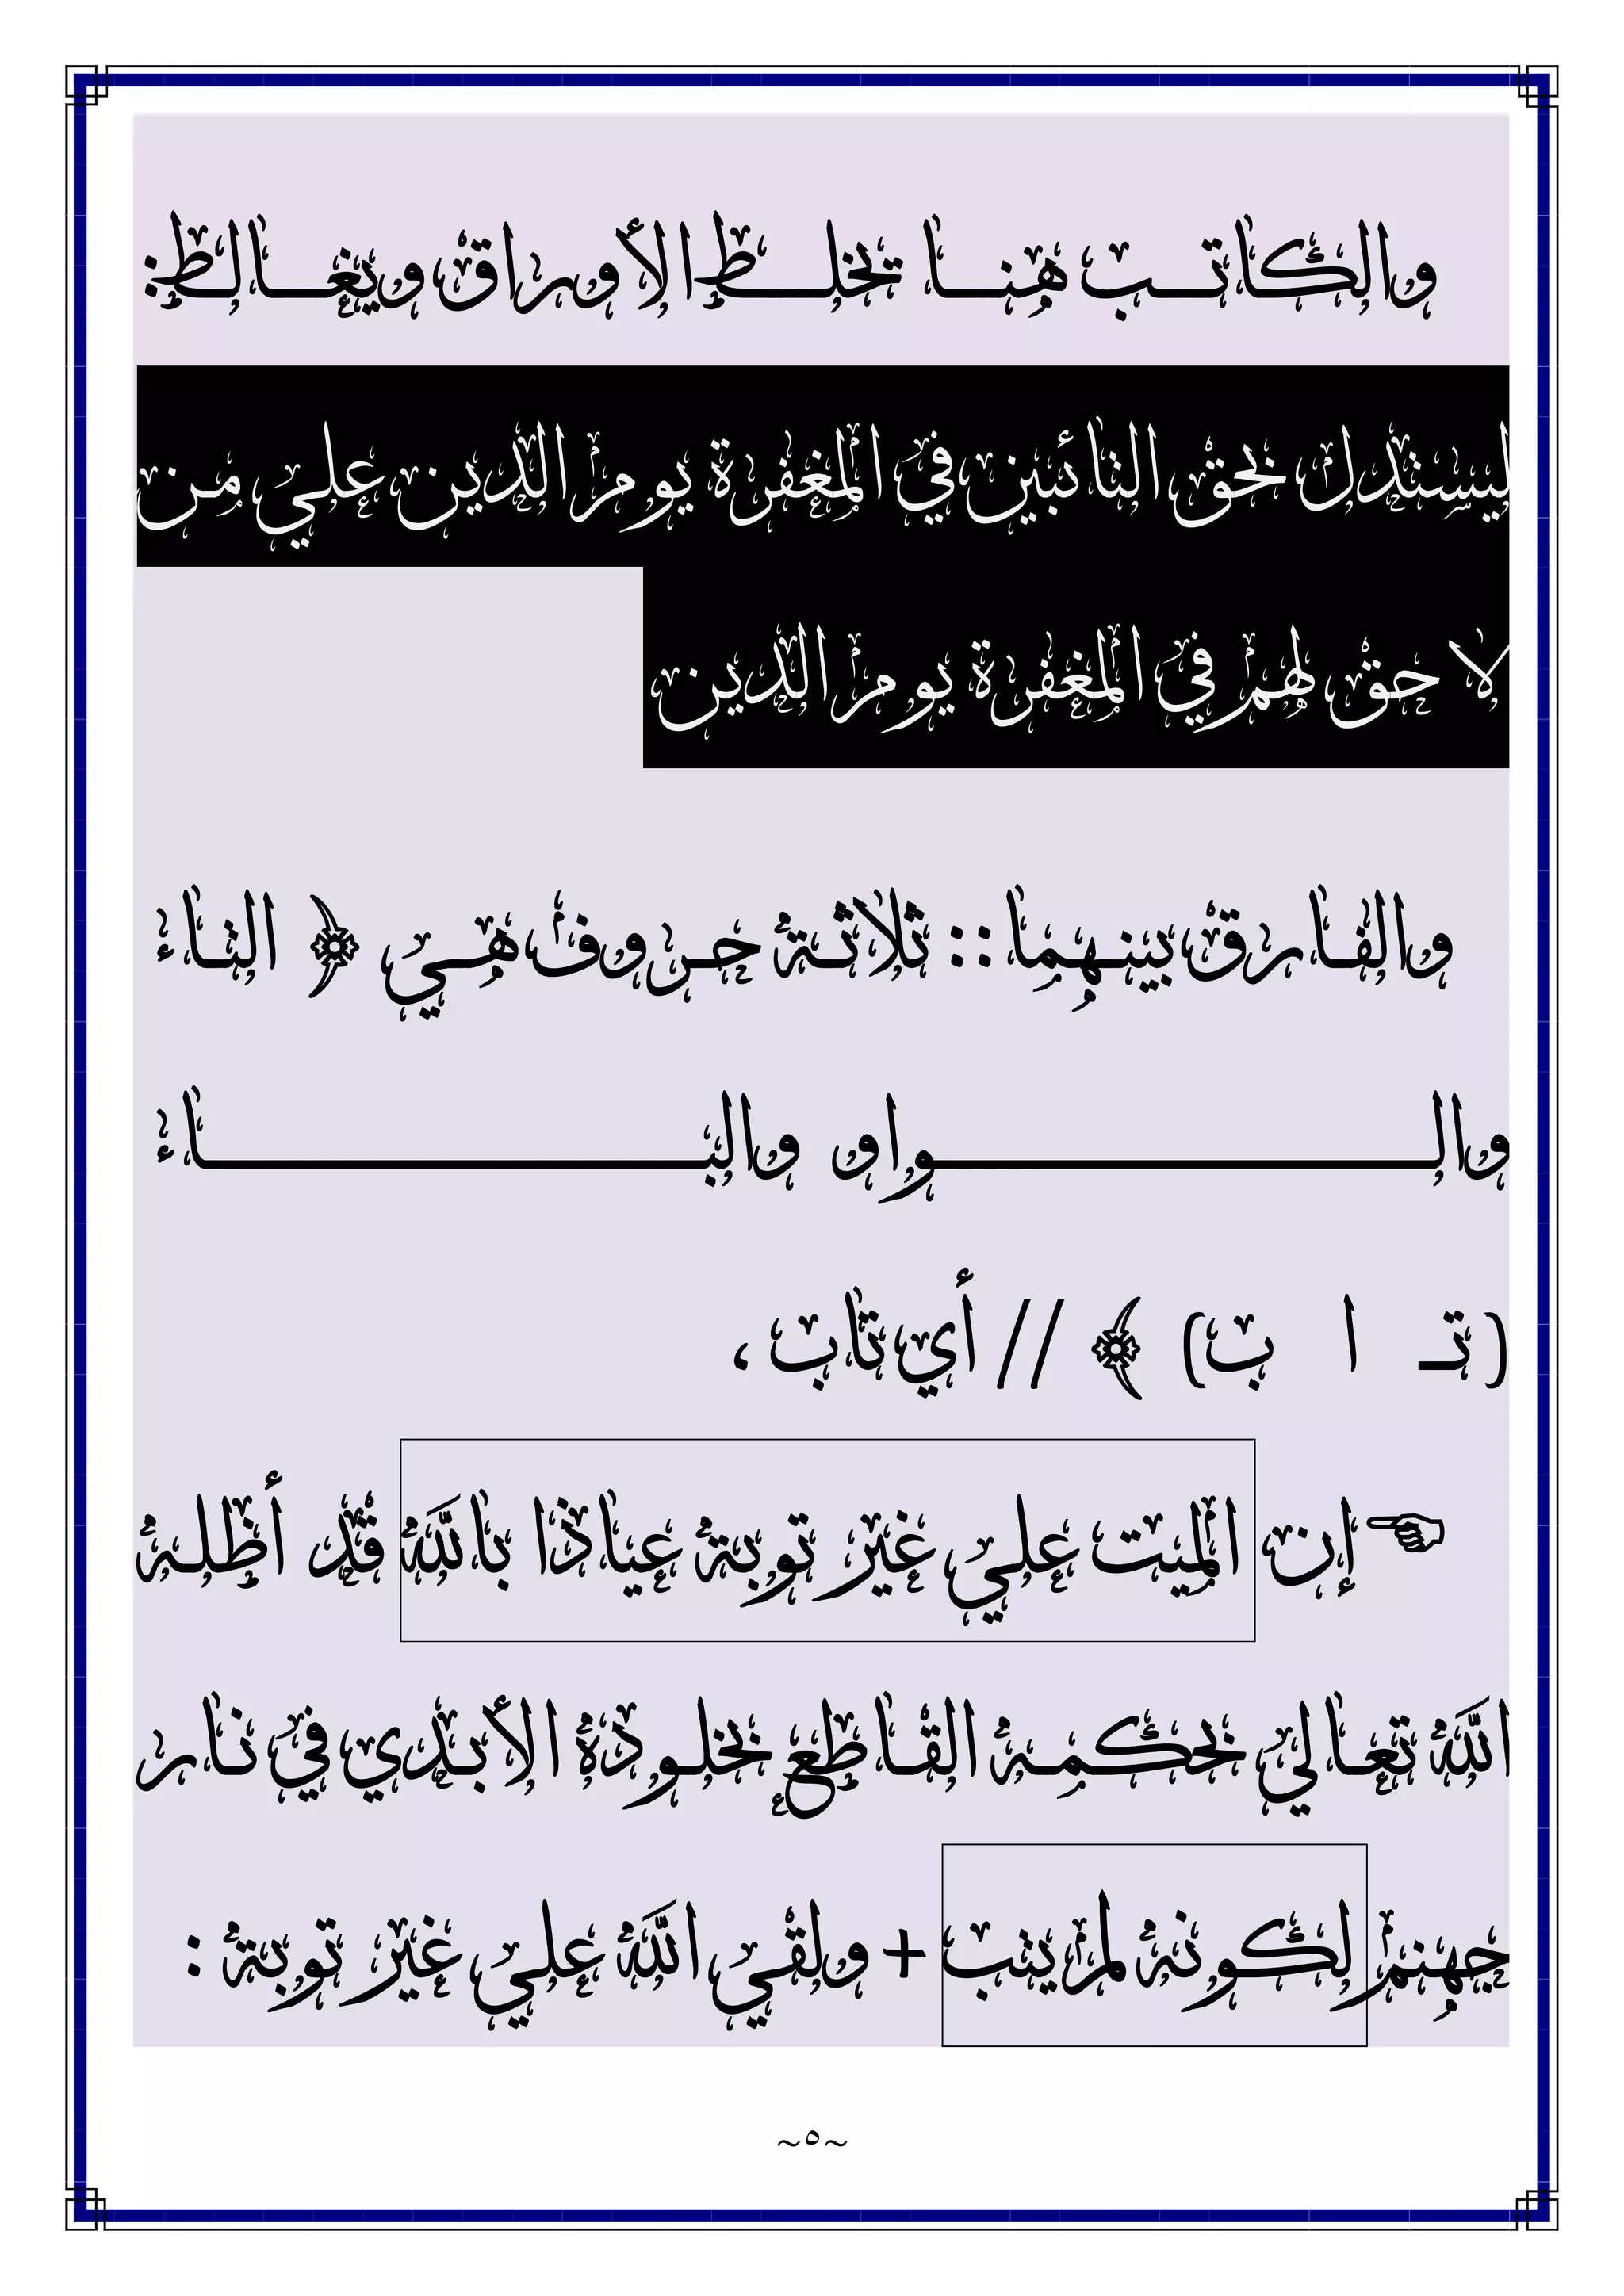 والكاتب هنا يخلط الأوراق ويغالط:
ليستدل بحق التائبين في المغفرة يوم الدين علي من
لا حق لهم في المغفرة يوم الدين
والفارق بينهما :: ثلاثة حروف هي ﴿ التاء
والواو والباء
(تـ ا ب) ﴾ // أي تاب ،
☜إن الميت علي غير توبة عياذا بالله قد أظله
الله تعالي بحكمه القاطع بخلوده الأبدي في نار
جهنم لكونه لم يتب + ولقي الله علي غير توبة :
~٥~